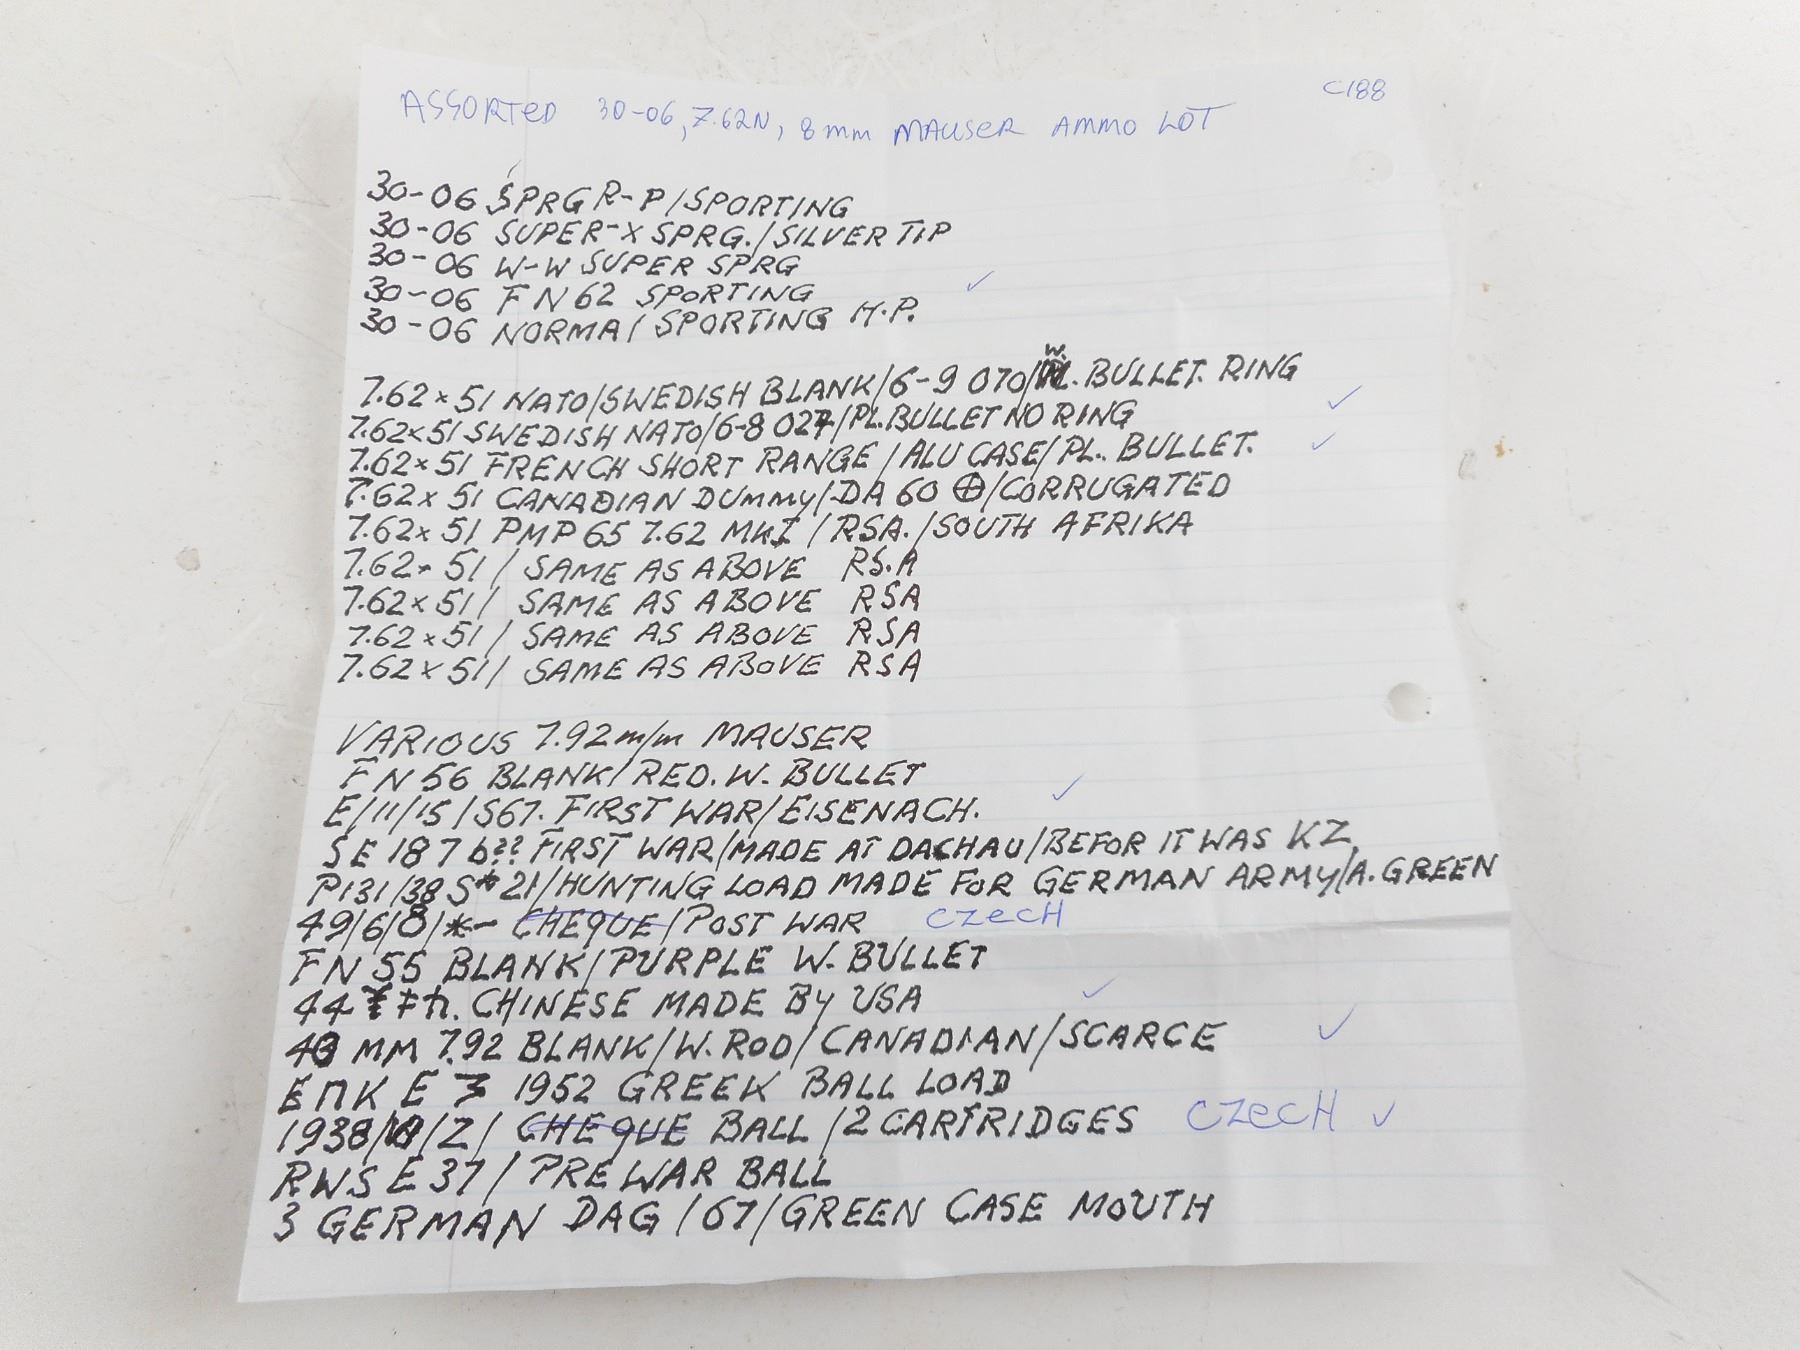 C188
ASSORTED 30-06, 7.62N, 8mm MAUSER AMMO LOT
30-06 SPRG R-P/SPORTING
30-06 SUPER-X SPRG./SILVER TIP
30-06 W-W SUPER SPRG
30-06 FN 62 SPORTING ✓
30-06 NORMA/SPORTING H.P.
7.62×51 NATO/SWEDISH BLANK/6-9 070/W. BULLET. RING
7.62×51 SWEDISH NATO/6-8 027/PL.BULLET NO RING ✓
7.62×51 FRENCH SHORT RANGE/ALU CASE/PL. BULLET. ✓
7.62×51 CANADIAN DUMMY/DA 60 ⊕/CORRUGATED
7.62×51 PMP 65 7.62 MKI/RSA./SOUTH AFRIKA
7.62×51/ SAME AS ABOVE RS.A
7.62×51/ SAME AS ABOVE RSA
7.62×51/ SAME AS ABOVE RSA
7.62×51/ SAME AS ABOVE RSA
VARIOUS 7.92 m/m MAUSER
FN 56 BLANK/RED. W. BULLET
E/11/15/S67. FIRST WAR/EISENACH. ✓
SE 18 7 6?? FIRST WAR/MADE AT DACHAU/BEFOR IT WAS KZ,
P131/38 S* 21/HUNTING LOAD MADE FOR GERMAN ARMY/A. GREEN
49/6/8/*- CHEQUE/POST WAR CZECH
FN 55 BLANK/PURPLE W. BULLET
44 CHINESE MADE BY USA ✓
43 MM 7.92 BLANK/W. ROD/CANADIAN/SCARCE ✓
ΕΠΚ E 1952 GREEK BALL LOAD
1938/ /Z/ CHEQUE BALL/2 CARTRIDGES CZECH ✓
RWS E 37/PRE WAR BALL
3 GERMAN DAG/67/GREEN CASE MOUTH